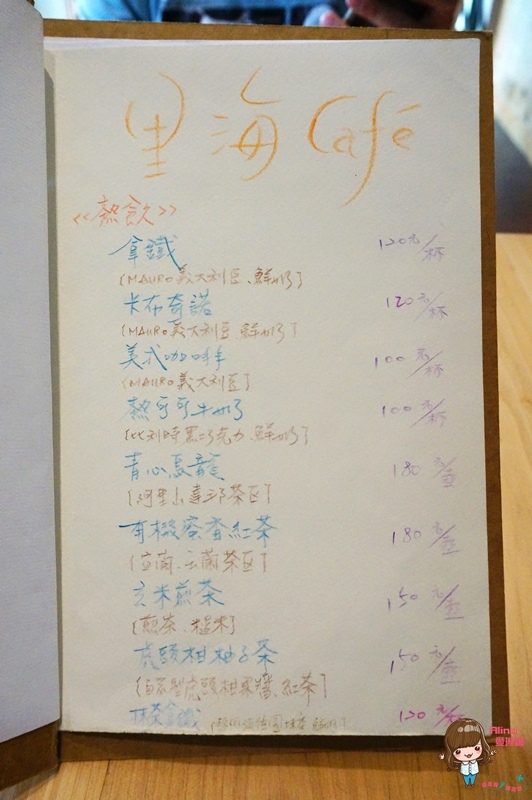 里海 Café
<<熱飲>>
拿鐵 120元/杯
(MAURO義大利豆、鮮ㄋㄞ)
卡布奇諾 120元/杯
(MAURO義大利豆、鮮ㄋㄞ)
美式咖啡 100元/杯
(MAURO義大利豆)
熱可可牛ㄋㄞ 100元/杯
(比利時黑巧克力、鮮ㄋㄞ)
青心烏龍 180元/壺
(阿里山 茶區)
有機蜜香紅茶 180元/壺
(宜蘭、玉蘭茶區)
玄米煎茶 150元/壺
(煎茶、糙米)
虎頭柑柚子茶 150元/壺
(自製虎頭柑果醬、紅茶)
抹茶拿鐵 120元/杯
Aling